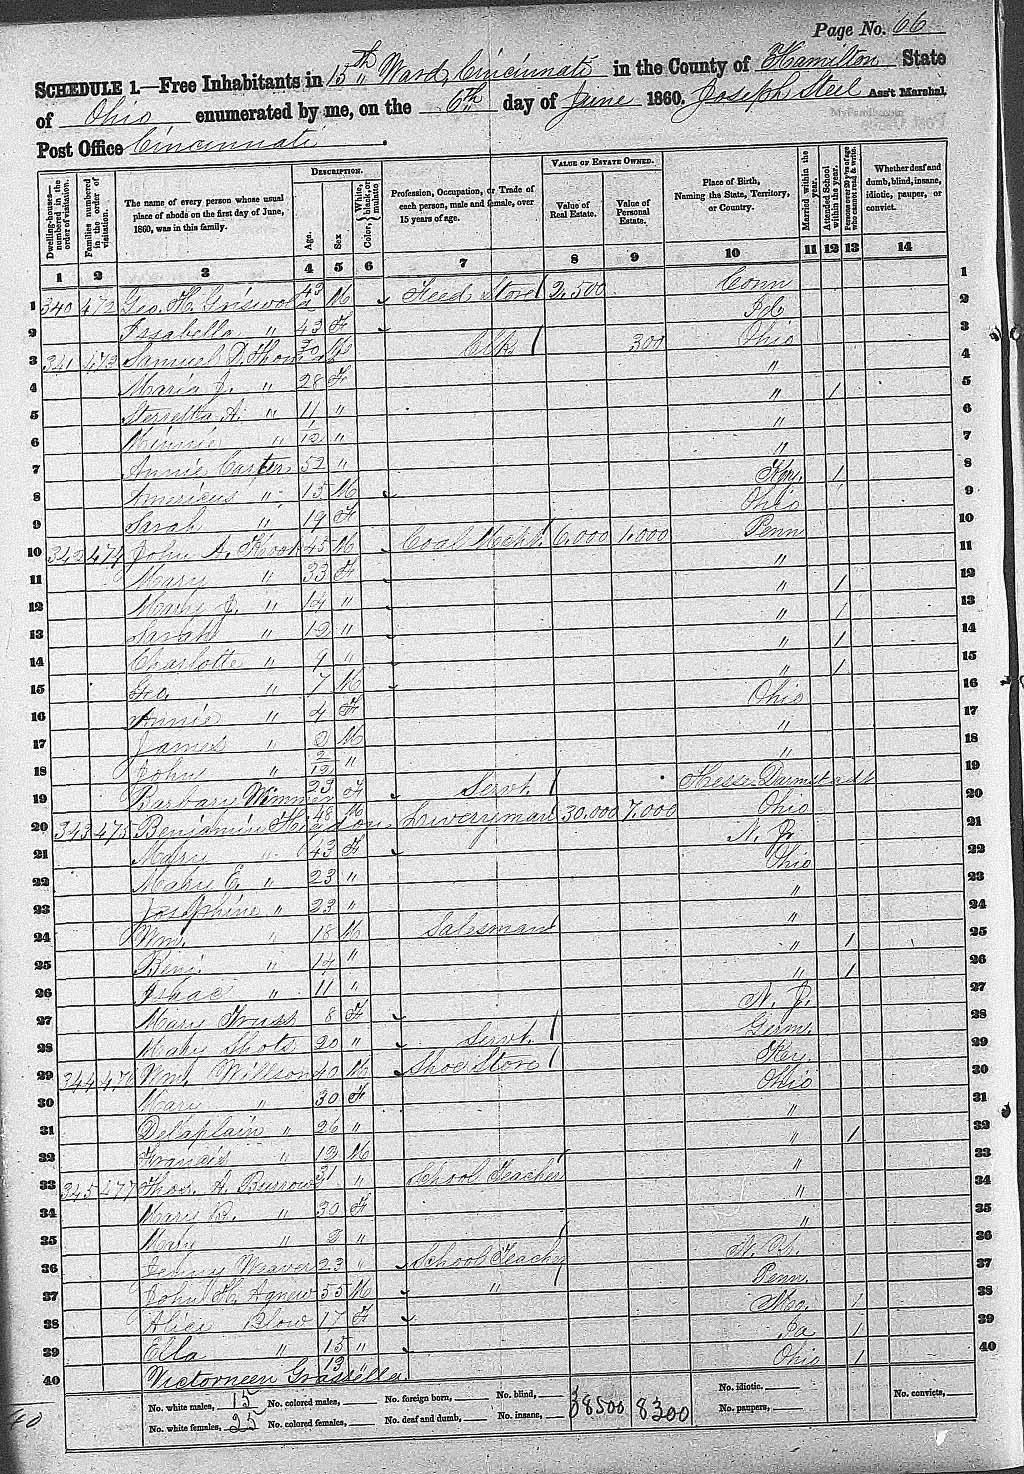 Page No. 66
SCHEDULE 1.—Free Inhabitants in 15th Ward, Cincinnati in the County of Hamilton State
of Ohio enumerated by me, on the 6th day of June 1860. Joseph Steel Ass't Marshal,
Post Office Cincinnati.
Dwelling-houses—numbered in the order of visitation. Families numbered in the order of visitation. The name of every person whose usual place of abode on the first day of June, 1860, was in this family. DESCRIPTION. Age. Sex Color, White, black, or mulatto Profession, Occupation, or Trade of each person, male and female, over 15 years of age. VALUE OF ESTATE OWNED. Value of Real Estate. Value of Personal Estate. Place of Birth, Naming the State, Territory, or Country. Married within the year. Attended School within the year. Persons over 20 y'rs of age who cannot read & write. Whether deaf and dumb, blind, insane, idiotic, pauper, or convict.
1 2 3 4 5 6 7 8 9 10 11 12 13 14
1 340 472 Geo. H. Griswold 43 M Feed Store 2,500 Conn 1
2 Issabella " 43 F 2
3 341 473 Samuel D. 30 M Clk 300 Ohio 3
4 Maria J. " 28 F " 4
5 A. " 11 " " 1 5
6 Minnie " 1/12 " " 6
7 Annie Carter 52 " " 7
8 Americus " 15 M Key. 1 8
9 Sarah " 19 F Ohio 9
10 342 474 John A. 45 M Coal Mcht. 6,000 1,000 Penn 10
11 Mary " 33 F " 11
12 Mary J. " 14 " " 1 12
13 Sarah " 12 " " 1 13
14 Charlotte " 9 " " 1 14
15 Geo. " 7 M " 1 15
16 Annie " 4 F Ohio 16
17 James " 2 M " 17
18 John " 2/12 " " 18
19 Barbary 23 F Servt. Hesse-Darmstadt 19
20 343 475 Benjamin 48 M Liveryman 30,000 7,000 Ohio 20
21 Mary " 43 F N. J. 21
22 Mary E. " 23 " Ohio 22
23 Josephine " 23 " " 23
24 Wm. " 18 M Salesman " 24
25 Benj. " 14 " " 1 25
26 Isaac " 11 " " 1 26
27 Mary 8 F N. J. 27
28 Mary Shotz 20 " Servt. Germ. 28
29 344 476 Wm. Willson 40 M Shoe Store Key. 29
30 Mary " 30 F Ohio 30
31 Delaplain " 26 " " 31
32 Francis " 13 M " 1 32
33 345 477 Thos. A. Burrows 31 " School Teacher " 33
34 Mary R. " 30 F " 34
35 Mary " 2 " " 35
36 Jenny Weaver 23 " School Teachr 36
37 John H. Agnew 55 M " Penn. 37
38 Alice Blow 17 F Mo. 1 38
39 Ella " 15 " 1 39
40 Victorneen Grasselli 13 " Ohio 1 40
No. white males, 15 No. colored males, No. foreign born, No. blind, 38500 8300 No. idiotic, No. convicts,
No. white females, 25 No. colored females, No. deaf and dumb, No. insane, No. paupers,
40